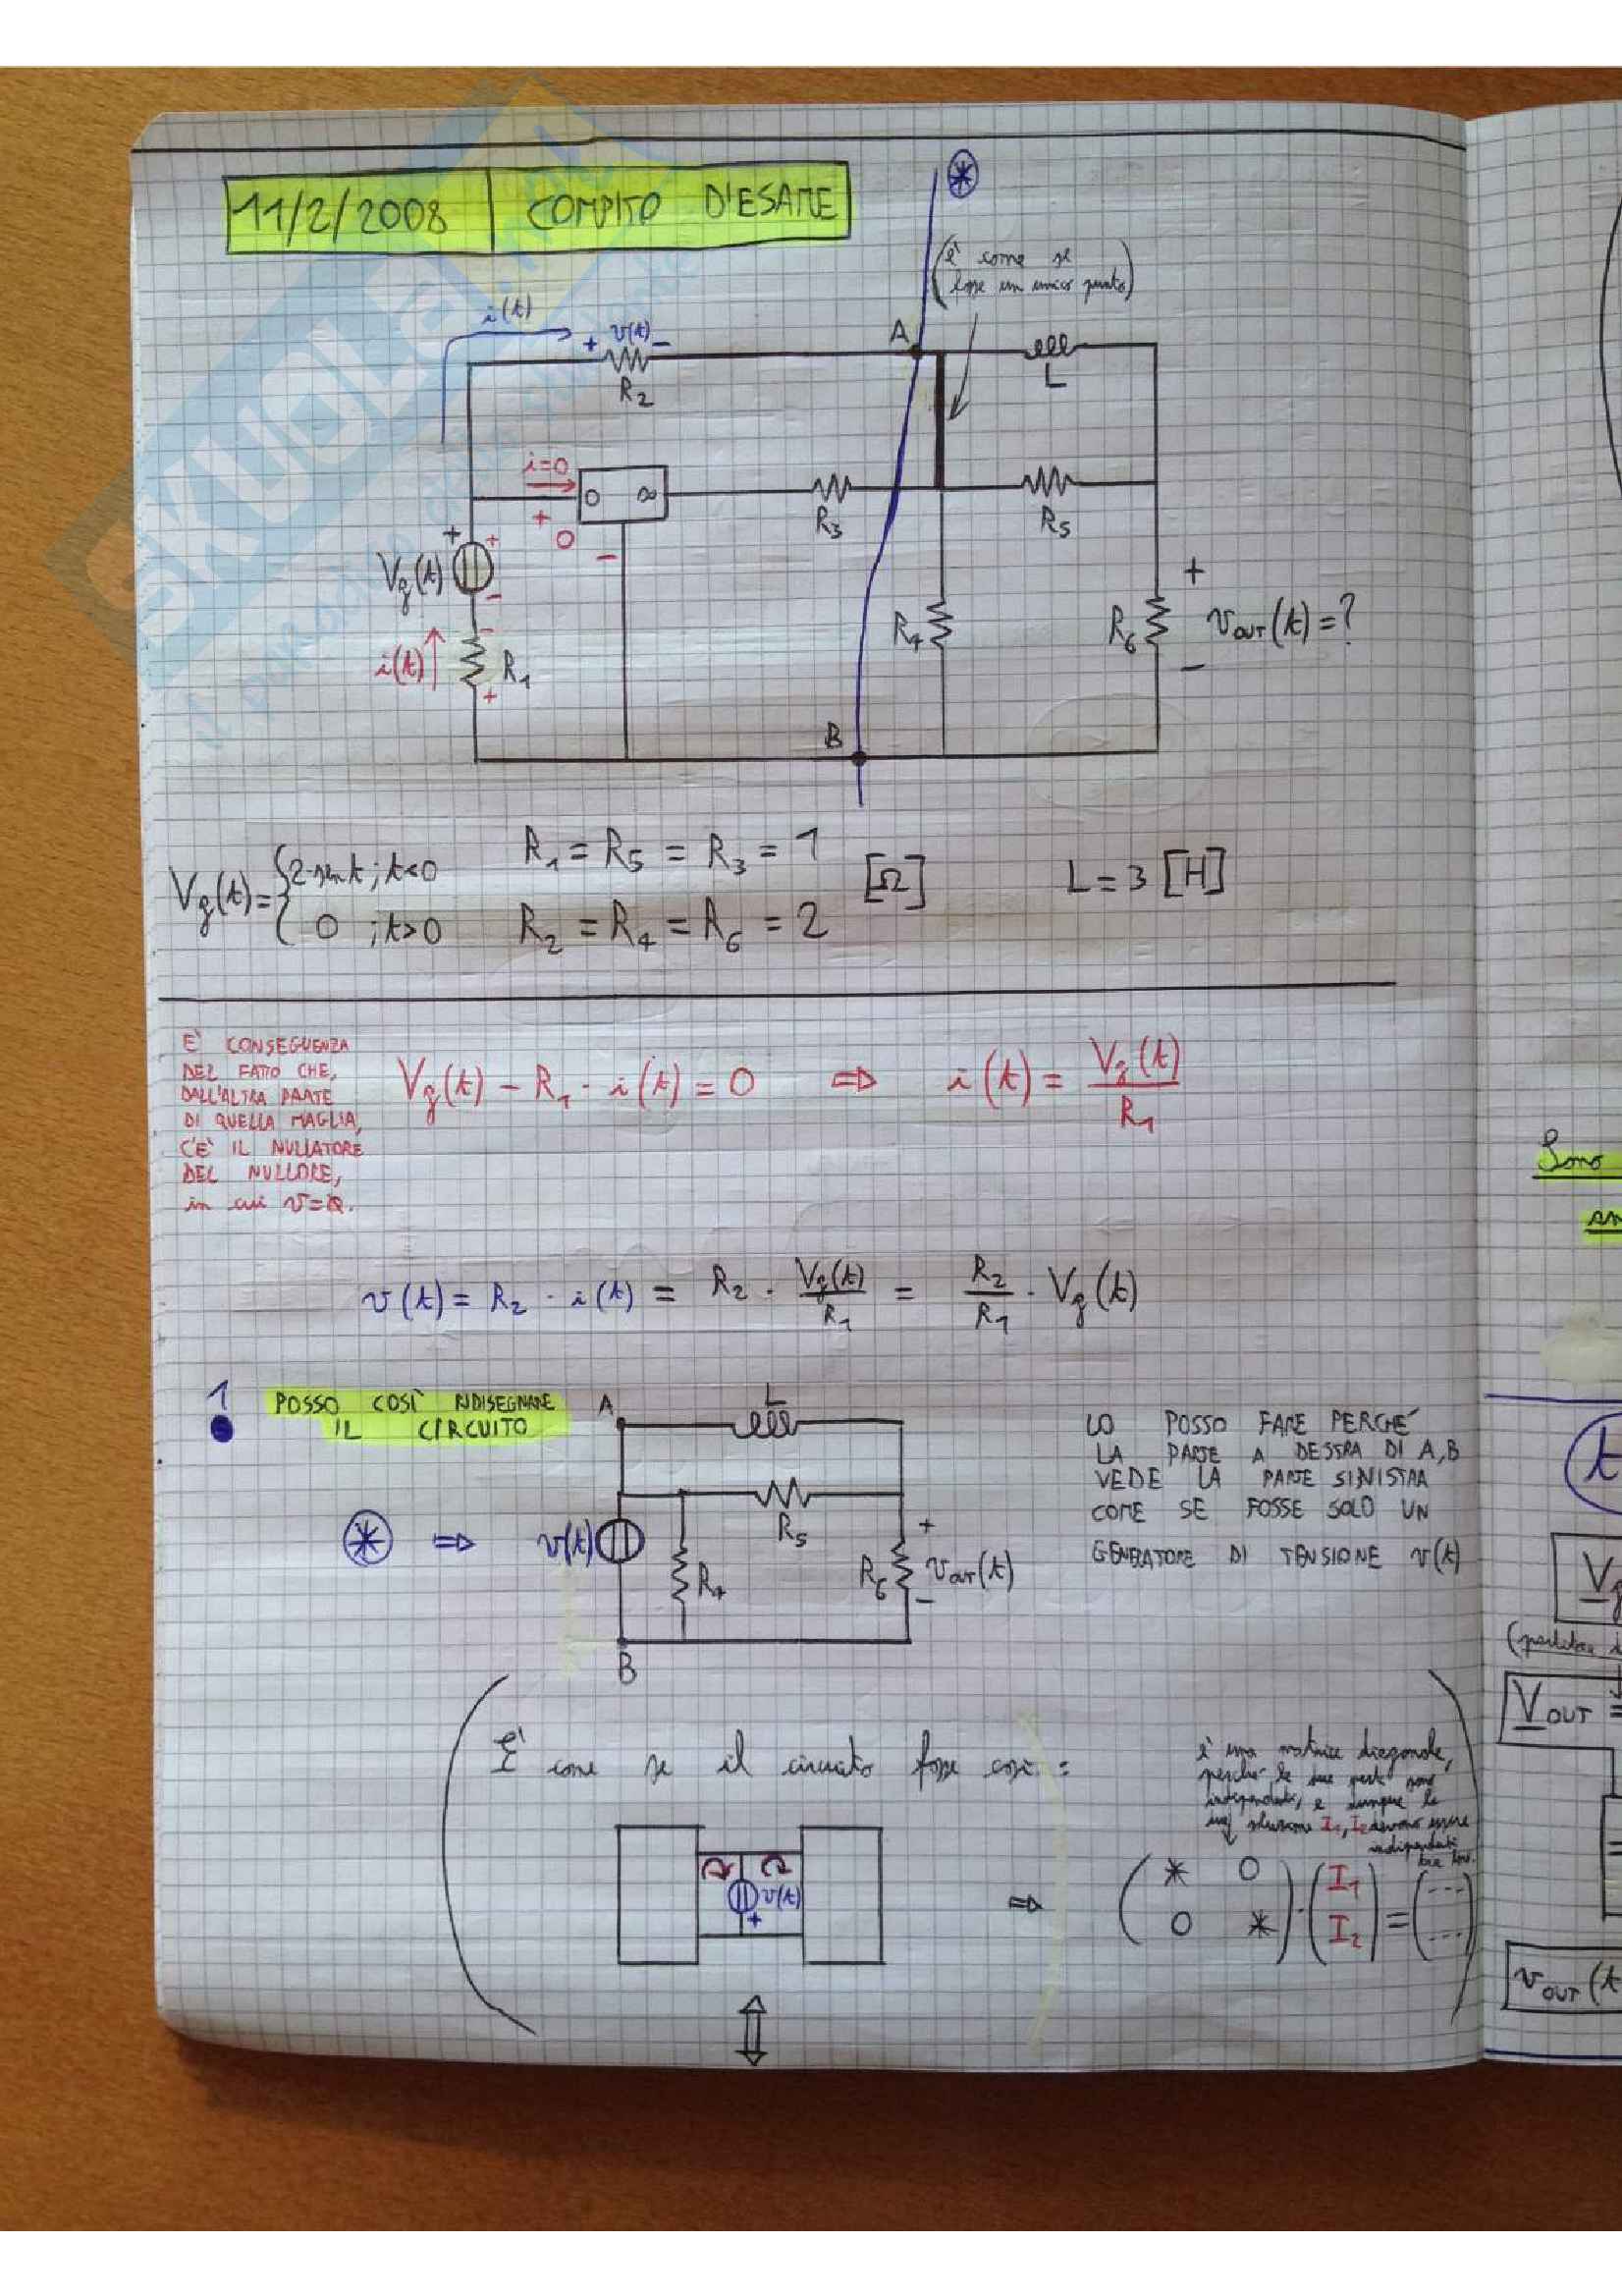 11/2/2008 | COMPITO D'ESAME
*
(è come se
fosse un unico punto)
i(t)
+ v(t) -
R2
A
L
i=0
0 ∞
+ 0 -
R3
R5
+
Vg(t)
+
-
i(t)
-
R1
+
R4
R6
+
vOUT(t)=?
-
B
Vg(t)={2·sin t ; t<0
0 ; t>0
R1 = R5 = R3 = 1
R2 = R4 = R6 = 2
[Ω]
L = 3 [H]
E' CONSEGUENZA
DEL FATTO CHE,
DALL'ALTRA PARTE
DI QUELLA MAGLIA,
C'E' IL NULLATORE
DEL NULLORE,
in cui v=0.
Vg(t) - R1 · i(t) = 0 ⇒ i(t) = Vg(t)/R1
v(t) = R2 · i(t) = R2 · Vg(t)/R1 = R2/R1 · Vg(t)
1
POSSO COSÌ RIDISEGNARE
IL CIRCUITO
A
L
R5
* ⇒ v(t)
R4
R6
+
vOUT(t)
-
B
LO POSSO FARE PERCHE'
LA PARTE A DESTRA DI A,B
VEDE LA PARTE SINISTRA
COME SE FOSSE SOLO UN
GENERATORE DI TENSIONE v(t)
E' come se il circuito fosse così:
v(t)
+
⇒
è una matrice diagonale,
perché le due parti sono
indipendenti, e dunque le
soluzione I1, I2 devono essere
indipendenti
tra loro.
(* 0
0 *) · (I1
I2) = (---
---)
⇕
Sono
t
Vg
VOUT =
vOUT(t
SKUOLA